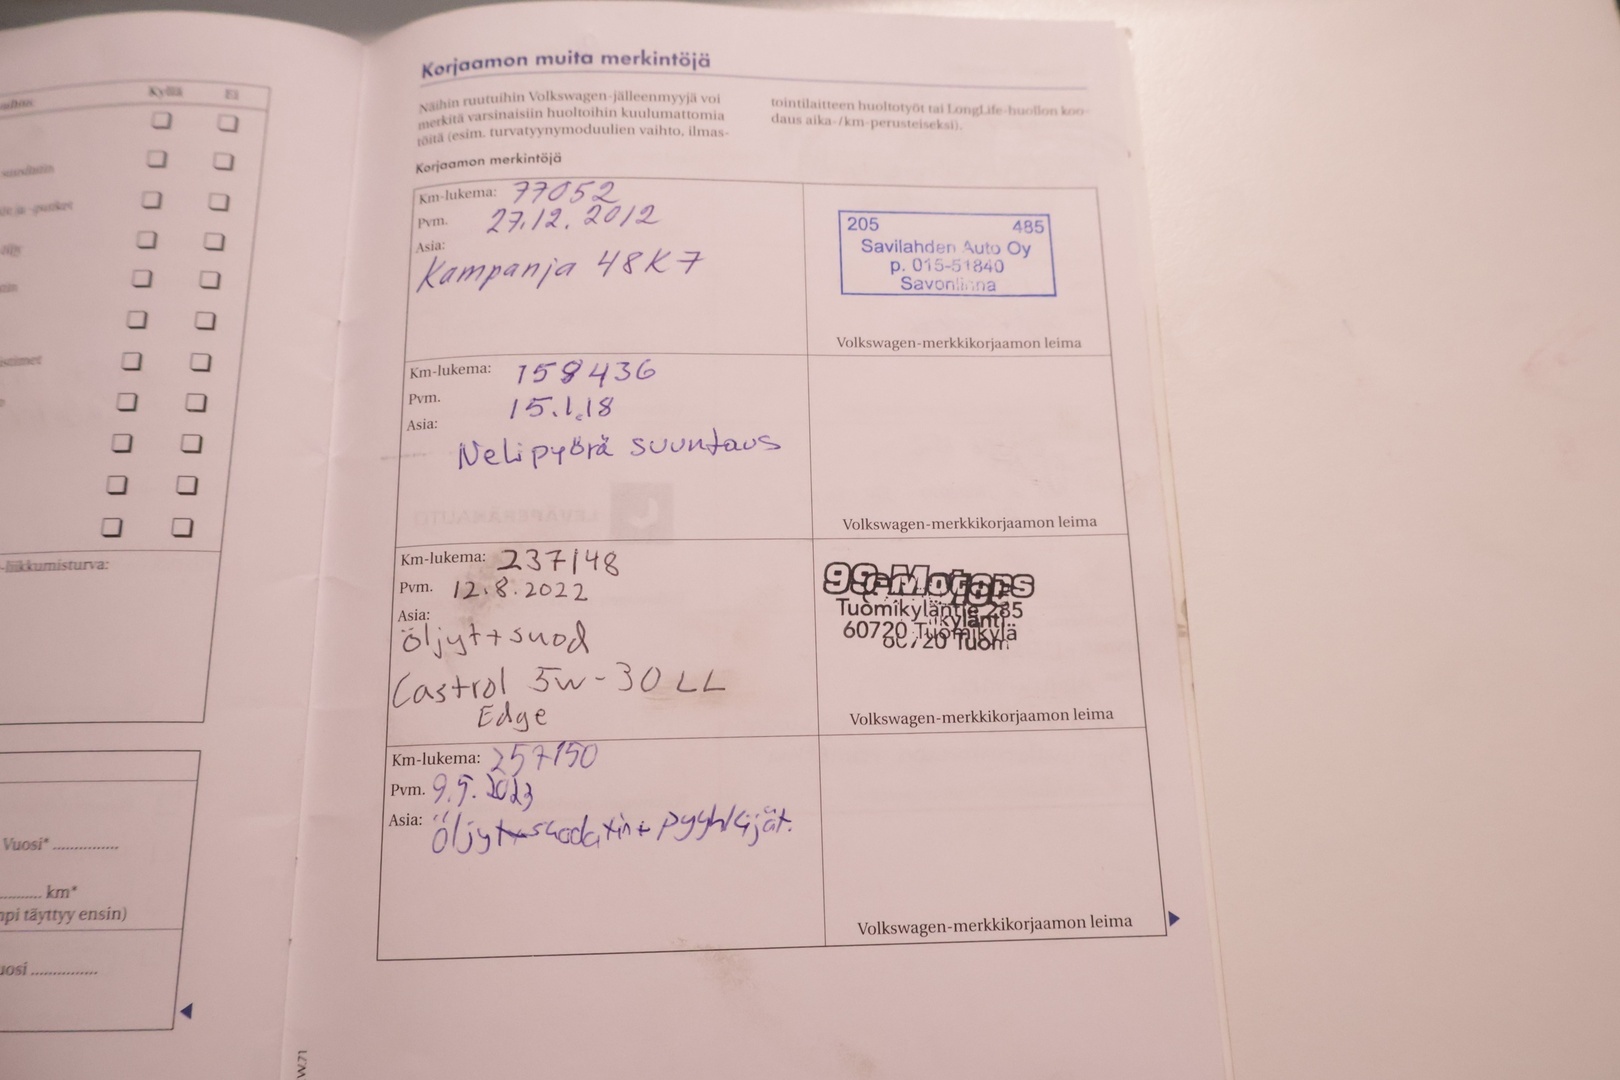 Kyllä Ei
-liikkumisturva:
Vuosi*
km*
täyttyy ensin)
Korjaamon muita merkintöjä
Näihin ruutuihin Volkswagen-jälleenmyyjä voi
merkitä varsinaisiin huoltoihin kuulumattomia
töitä (esim. turvatyynymoduulien vaihto, ilmas-
tointilaitteen huoltotyöt tai LongLife-huollon koo-
daus aika-/km-perusteiseksi).
Korjaamon merkintöjä
Km-lukema: 77052
Pvm. 27.12.2012
Asia:
Kampanja 48K7
205 485
Savilahden Auto Oy
p. 015-51840
Savonlinna
Volkswagen-merkkikorjaamon leima
Km-lukema: 158436
Pvm. 15.1.18
Asia:
Nelipyörä suuntaus
Volkswagen-merkkikorjaamon leima
Km-lukema: 237148
Pvm. 12.8.2022
Asia:
öljyt+suod
Castrol 5w-30 LL
Edge
99-Motors
Tuomikyläntie 285
60720 Tuomikylä
Volkswagen-merkkikorjaamon leima
Km-lukema: 257150
Pvm. 9.5.2023
Asia: Öljyt+suodatin+pyyhkijät.
Volkswagen-merkkikorjaamon leima